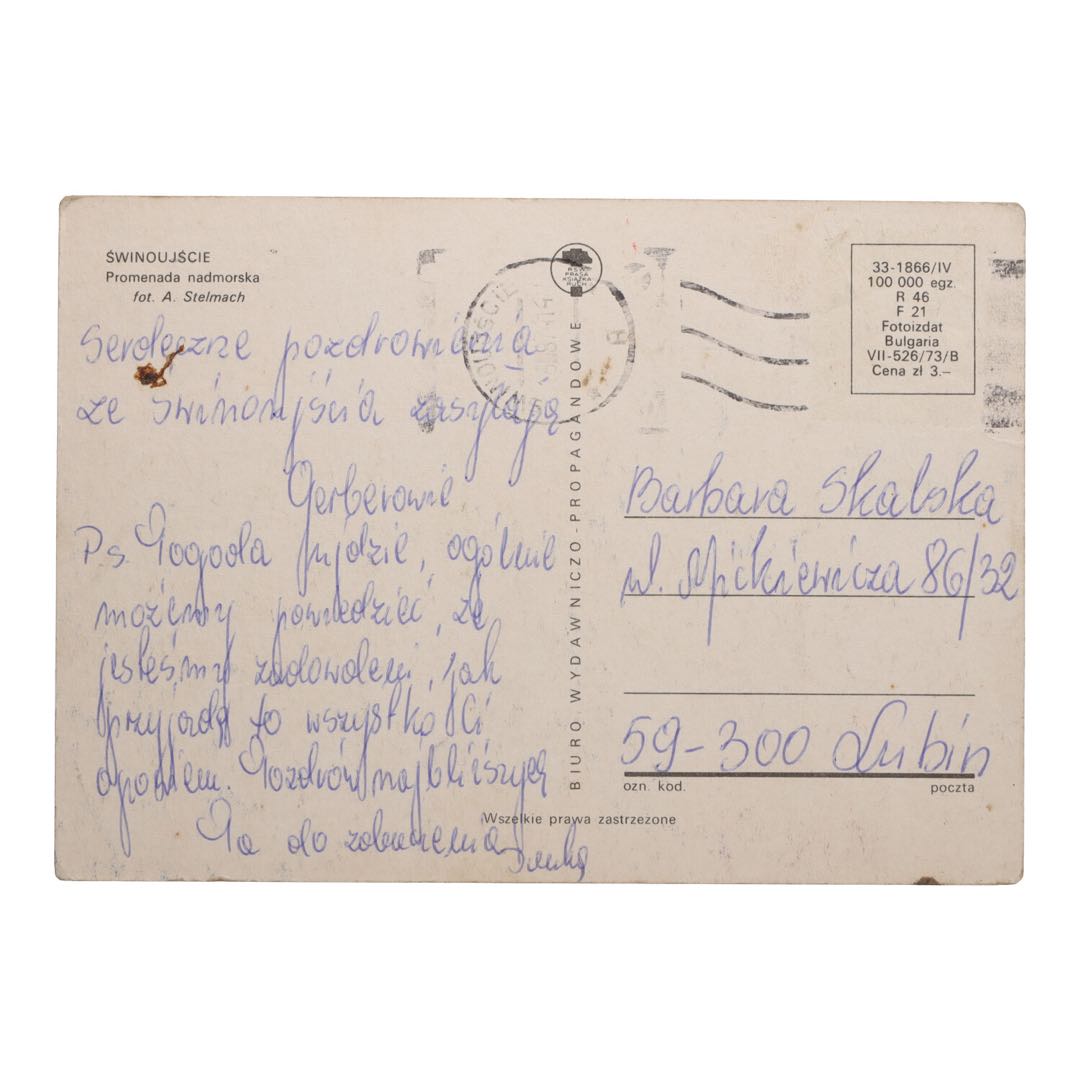 ŚWINOUJŚCIE
Promenada nadmorska
fot. A. Stelmach
Serdeczne pozdrowienia
ze Świnoujścia zasyłają
Gerberowie
Ps. Pogoda fujdzie, ogólnie
możemy powiedzieć, że
jesteśmy zadowoleni, jak
przyjadę to wszystko Ci
opowiem. Pozdrów najbliższych
Pa do zobaczenia
BIURO WYDAWNICZO-PROPAGANDOWE
RSW
PRASA
KSIĄŻKA
RUCH
33-1866/IV
100 000 egz.
R 46
F 21
Fotoizdat
Bulgaria
VII-526/73/B
Cena zł 3.—
Barbara Skalska
ul. Mickiewicza 86/32
59-300 Lubin
ozn. kod. poczta
Wszelkie prawa zastrzeżone